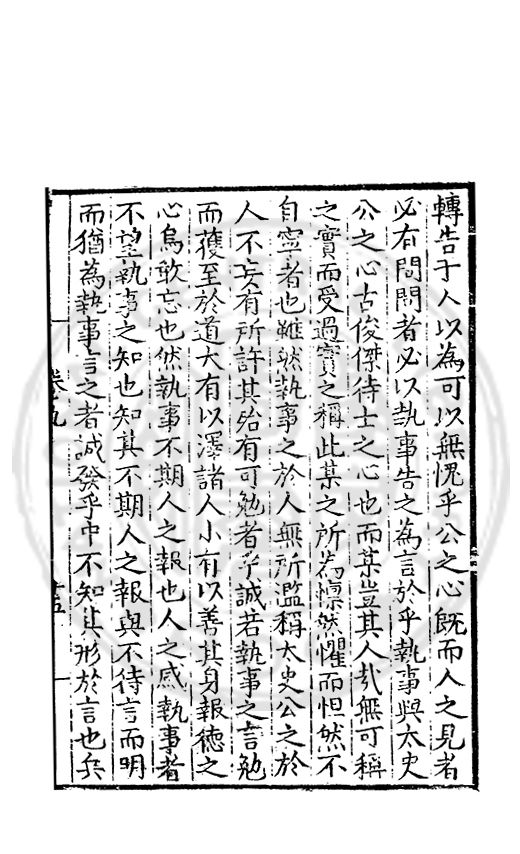 轉告于人以為可以無愧乎公之心既而人之見者
必有問問者必以執事告之為言於乎執事與太史
公之心古俊傑待士之心也而某豈其人哉無可稱
之實而受過實之稱此某之所為懍然懼而怛然不
自寧者也雖然執事之於人無所濫稱太史公之於
人不妄有所許其殆有可勉者乎誠若執事之言勉
而獲至於道大有以澤諸人小有以善其身報德之
心烏敢忘也然執事不期人之報也人之感執事者
不望執事之知也知其不期人之報與不待言而明
而猶為執事言之者誠發乎中不知其形於言也兵
卷九